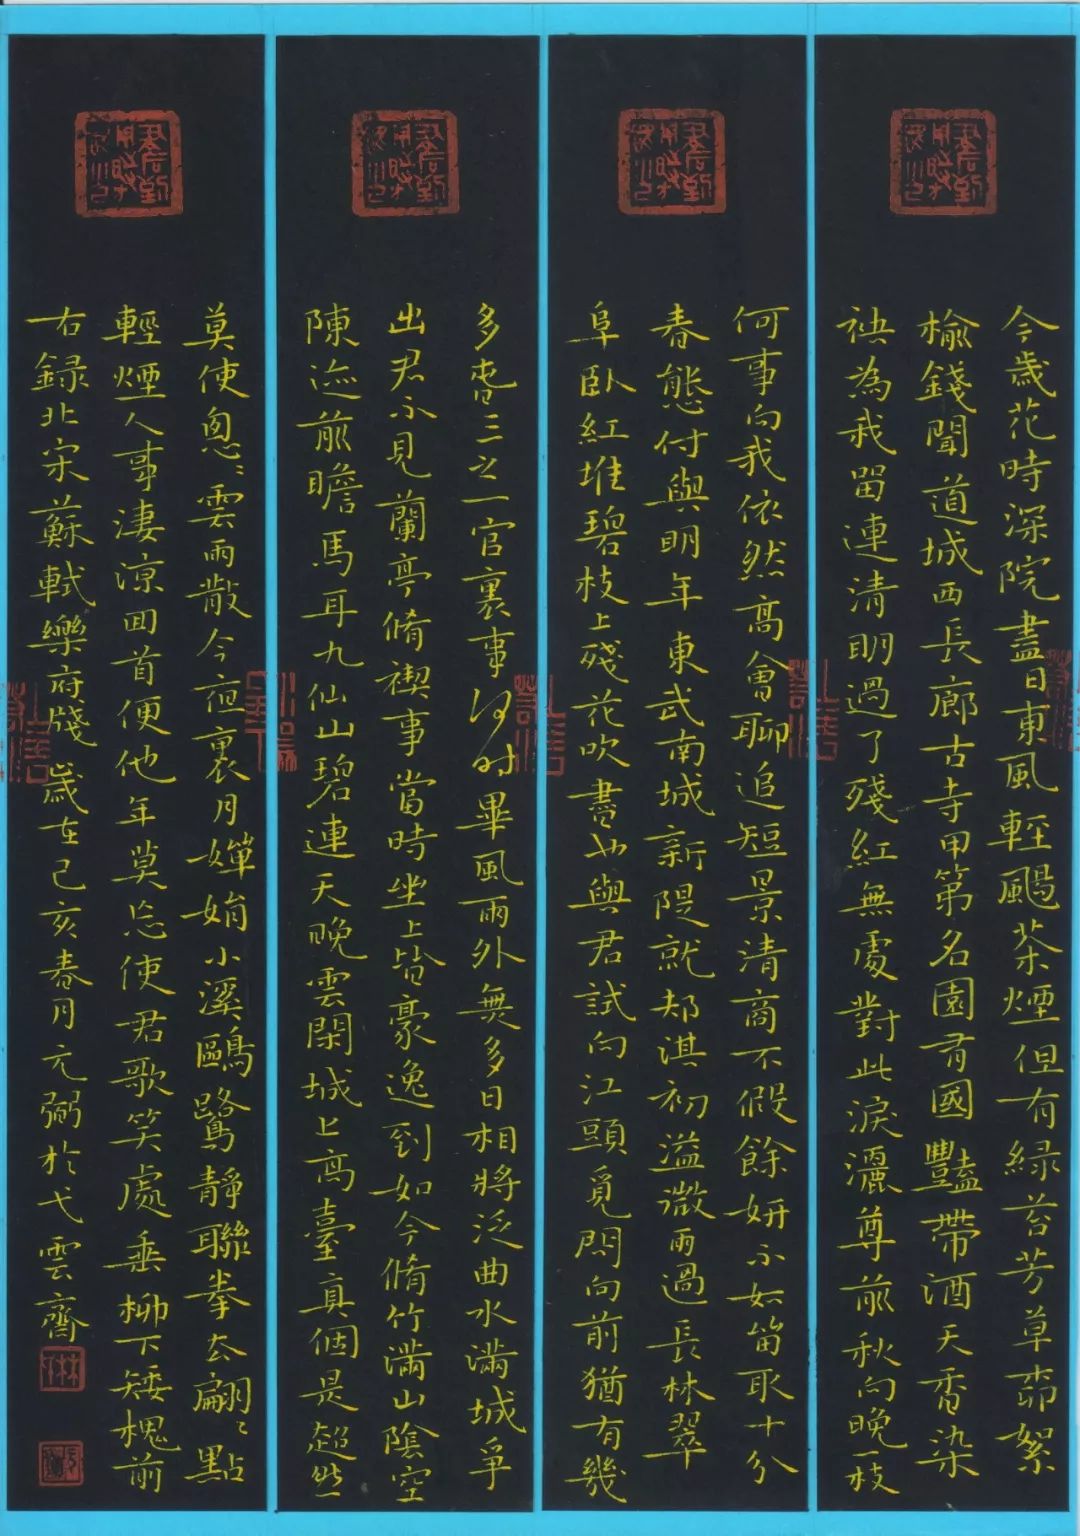 今歲花時深院盡日東風輕颺茶煙但有緑苔芳草茆絮
榆錢聞道城西長廊古寺甲第名園有國豔帶酒天香染
袂為我留連清明過了殘紅無處對此淚灑尊前秋向晚一枝
何事向我依然高會聊追短景清商不假餘妍不如留取十分
春態付與明年東武南城新隄就郟淇初溢微雨過長林翠
阜卧紅堆碧枝上殘花吹盡也與君試向江頭覓問向前猶有幾
多春三之一官裏事何時畢風雨外無多日相將泛曲水滿城爭
出君不見蘭亭脩禊事當時坐上皆豪逸到如今脩竹滿山陰空
陳迹前瞻馬耳九仙山碧連天晚雲閑城上高臺真個是超然
莫使匆〻雲雨散今夜裏月嬋娟小溪鷗鷺靜聯拳去翩〻點
輕煙人事淒涼回首便他年莫忘使君歌笑處垂柳下矮槐前
右録北宋蘇軾樂府牋歲在己亥春月元弼於弋雲齋